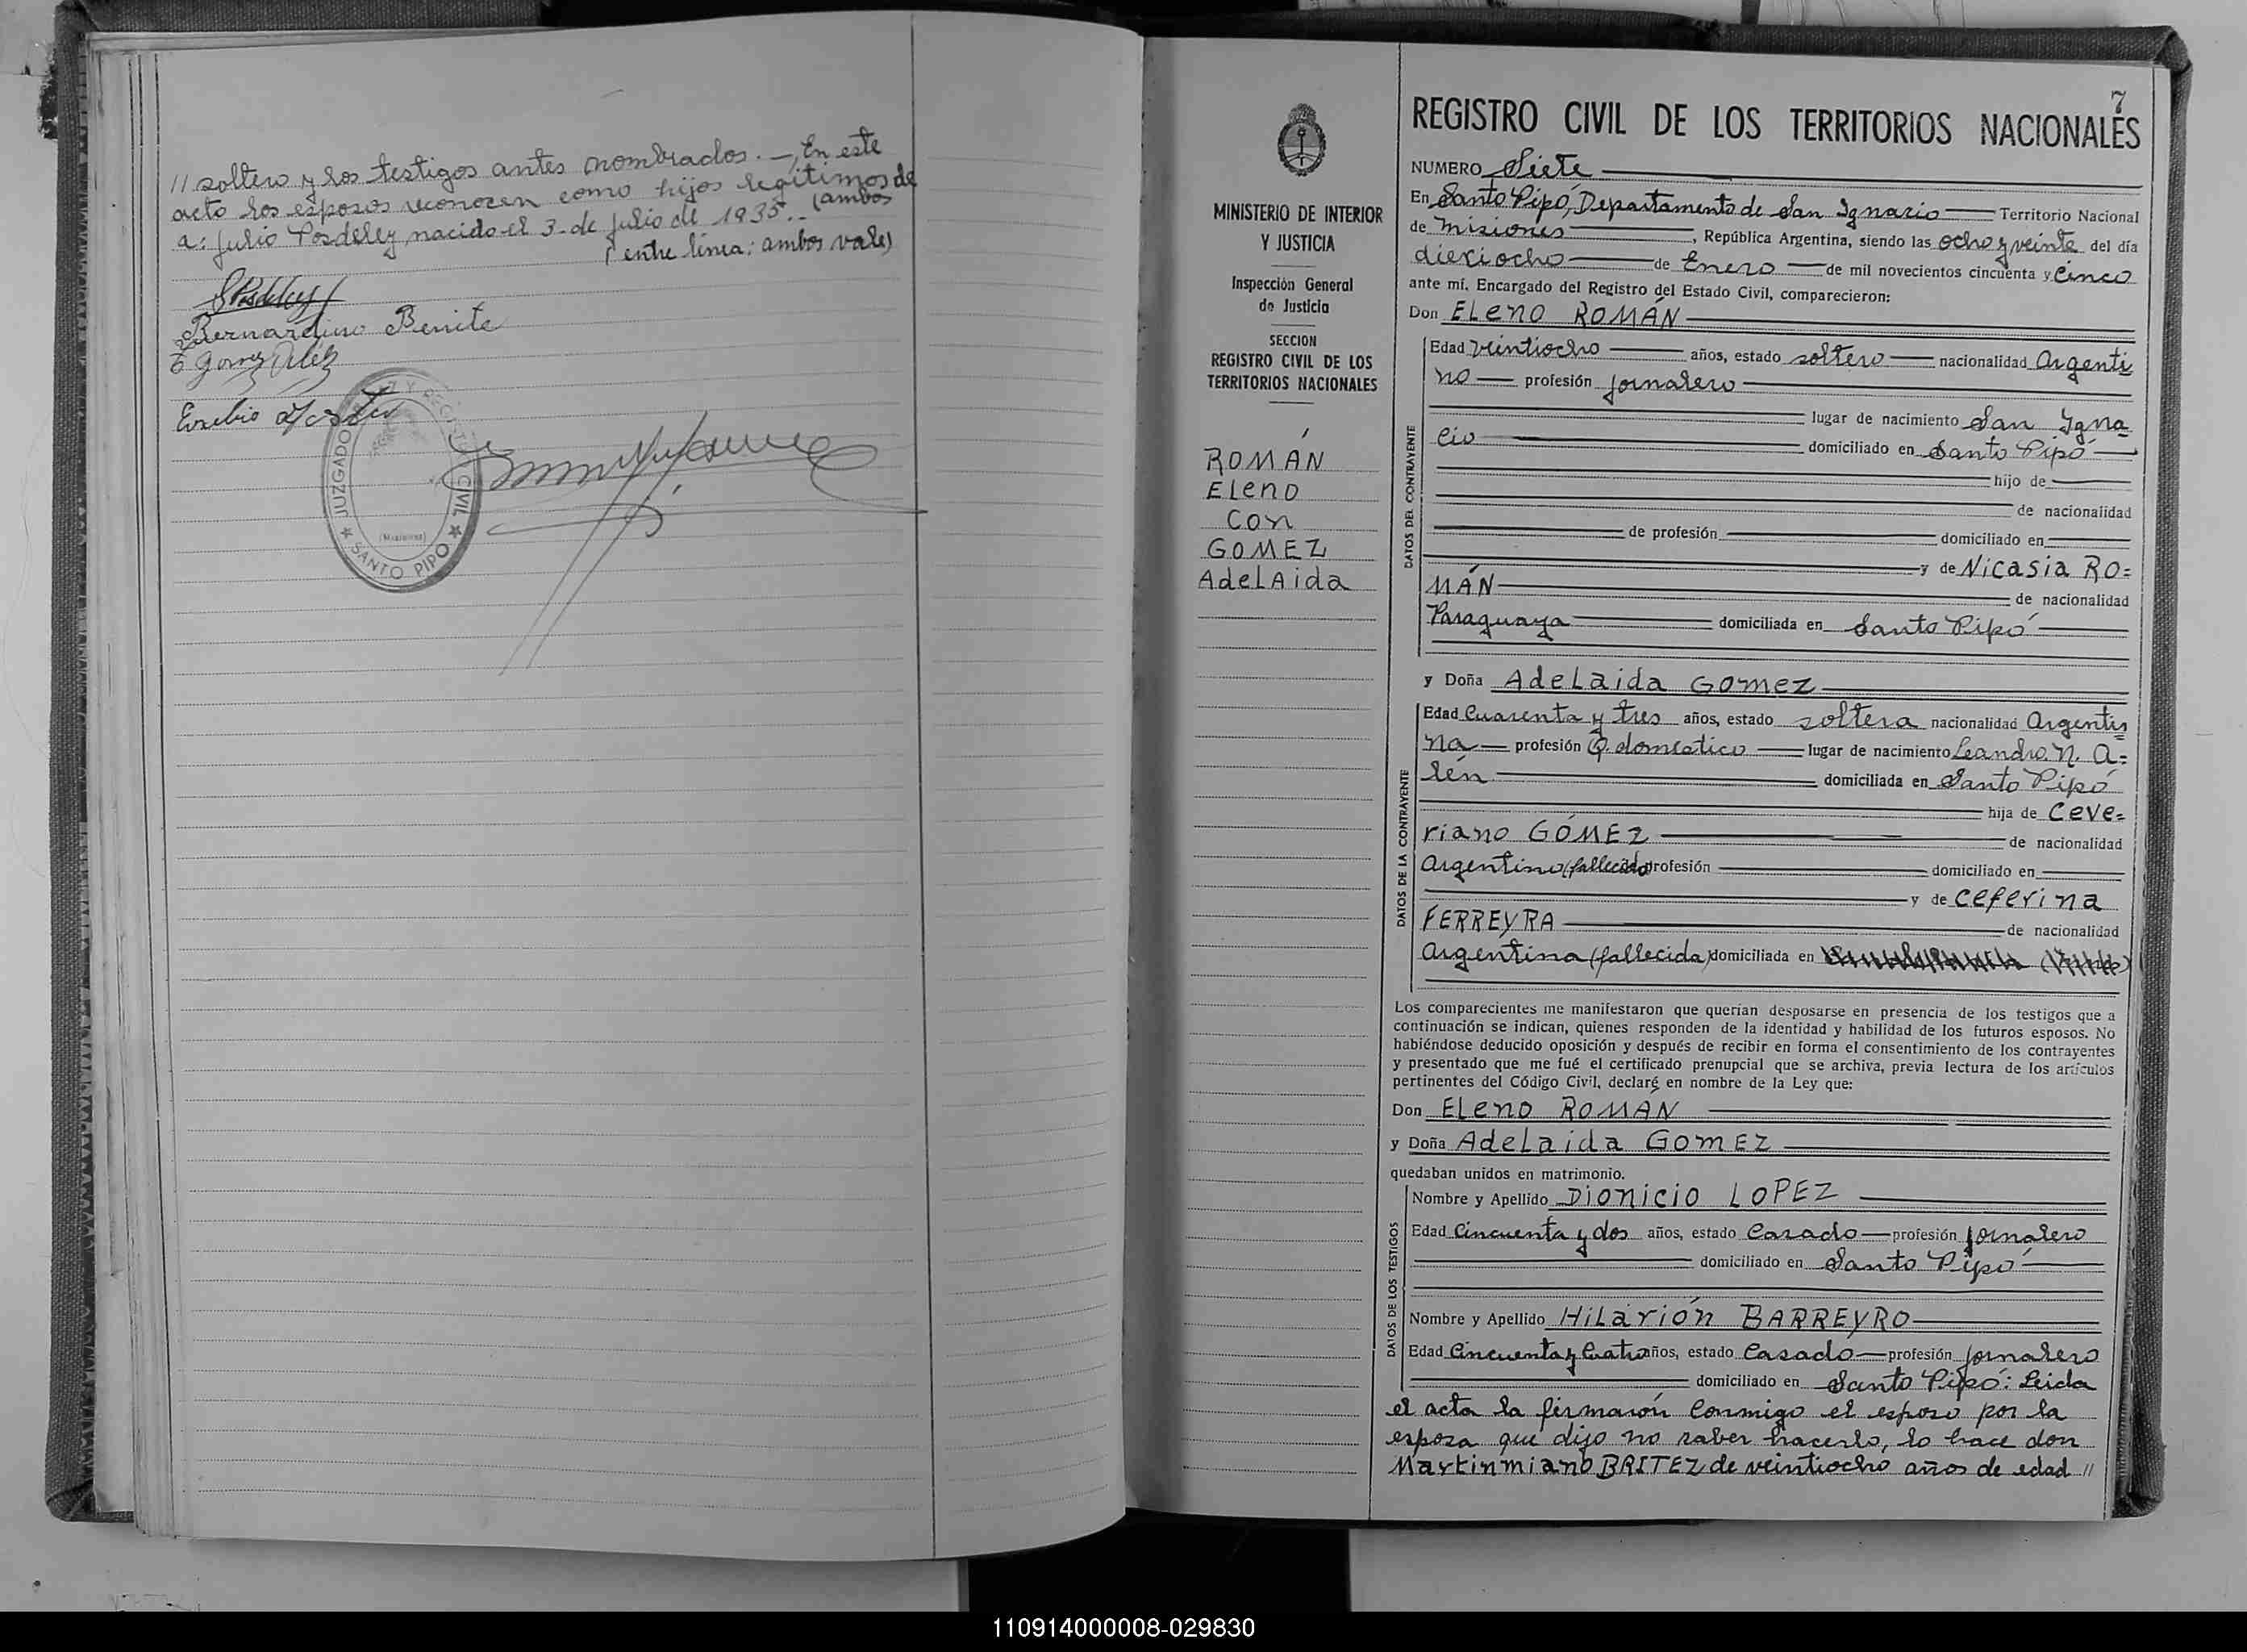 // soltero y los testigos antes nombrados. — En este
acto los esposos reconocen como hijos legítimos de
(ambos
a: Julio Posdeley nacido el 3 de Julio de 1935.-
(entre línea: ambos vale)
Bernardino Benite
Eusebio
JUZGADO Y CIVIL
(Misiones)
SANTO PIPO
MINISTERIO DE INTERIOR
Y JUSTICIA
Inspección General
de Justicia
SECCION
REGISTRO CIVIL DE LOS
TERRITORIOS NACIONALES
ROMÁN
Eleno
con
GOMEZ
Adelaida
7
REGISTRO CIVIL DE LOS TERRITORIOS NACIONALES
NUMERO Siete
En Santo Pipó, Departamento de San Ignacio Territorio Nacional
de Misiones, República Argentina, siendo las ocho y veinte del día
dieciocho de Enero de mil novecientos cincuenta y cinco
ante mí. Encargado del Registro del Estado Civil, comparecieron:
Don Eleno ROMÁN
DATOS DEL CONTRAYENTE
Edad veintiocho años, estado soltero nacionalidad Argenti
no profesión jornalero
lugar de nacimiento San Igna
cio domiciliado en Santo Pipó
hijo de
de nacionalidad
de profesión domiciliado en
y de Nicasia RO=
MÁN de nacionalidad
Paraguaya domiciliada en Santo Pipó
y Doña Adelaida Gomez
DATOS DE LA CONTRAYENTE
Edad Cuarenta y tres años, estado soltera nacionalidad Argenti=
na profesión Q. doméstico lugar de nacimiento Leandro N. A=
lén domiciliada en Santo Pipó
hija de Ceve=
riano GÓMEZ de nacionalidad
Argentino (fallecido) profesión domiciliado en
y de Ceferina
FERREYRA de nacionalidad
Argentina (fallecida) domiciliada en
Los comparecientes me manifestaron que querían desposarse en presencia de los testigos que a
continuación se indican, quienes responden de la identidad y habilidad de los futuros esposos. No
habiéndose deducido oposición y después de recibir en forma el consentimiento de los contrayentes
y presentado que me fué el certificado prenupcial que se archiva, previa lectura de los artículos
pertinentes del Código Civil, declaré en nombre de la Ley que:
Don Eleno ROMÁN
y Doña Adelaida Gomez
quedaban unidos en matrimonio.
DATOS DE LOS TESTIGOS
Nombre y Apellido Dionicio LOPEZ
Edad Cincuenta y dos años, estado Casado profesión jornalero
domiciliado en Santo Pipó
Nombre y Apellido Hilarión BARREYRO
Edad Cincuenta y Cuatro años, estado Casado profesión jornalero
domiciliado en Santo Pipó: Leida
el acta la firmarón conmigo el esposo por la
esposa que dijo no saber hacerlo, lo hace don
Martinmiano BRITEZ de veintiocho años de edad //
110914000008-029830